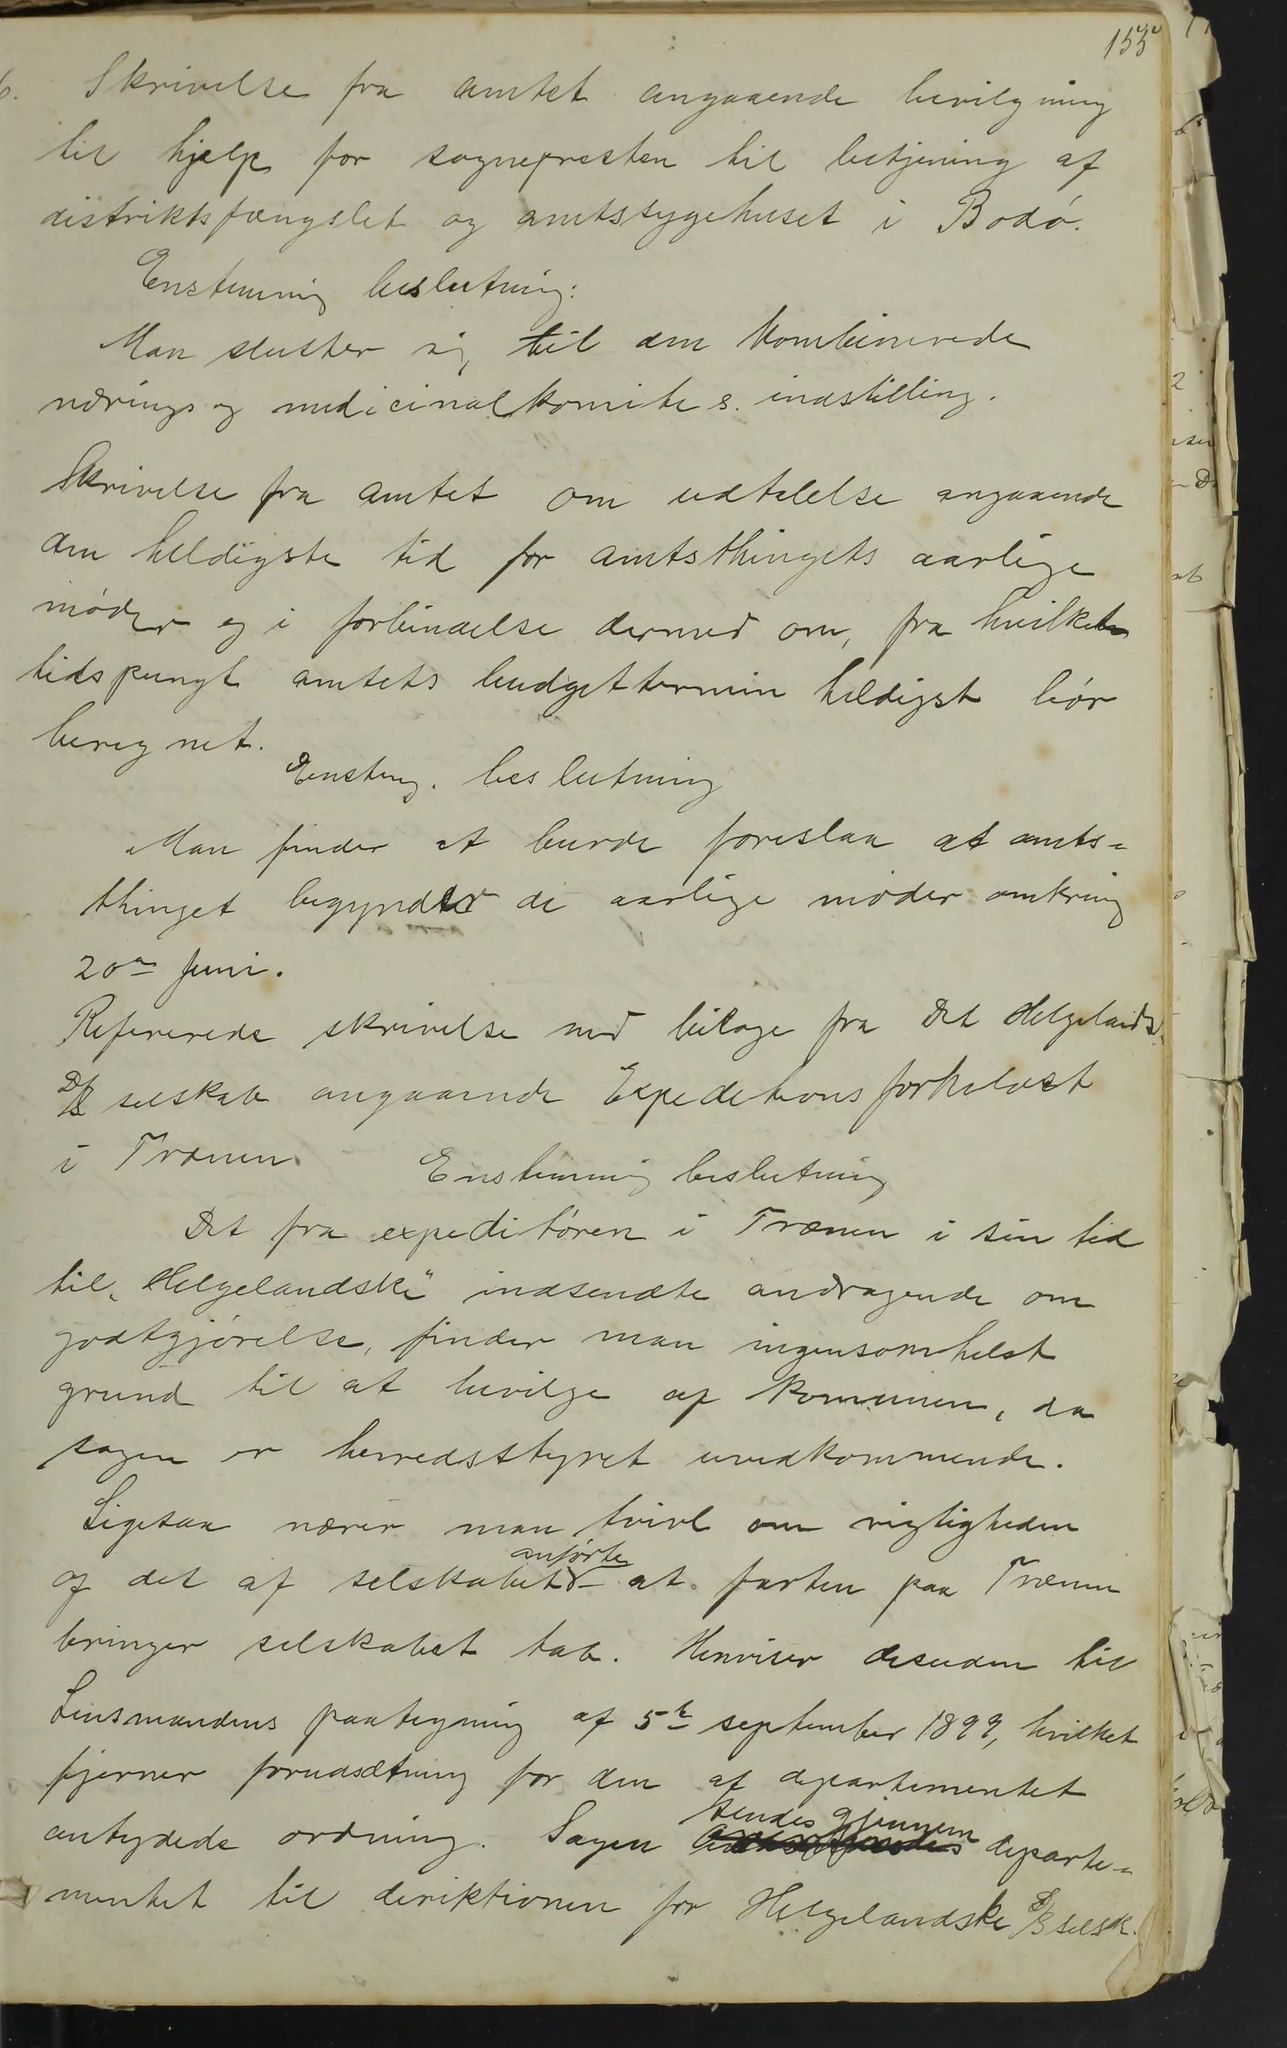 155
6. Skrivelse fra amtet angaaende bevilgning
til hjælp for sognepresten til betjening af
distriktsfængslet og amtssygehuset i Bodø.
Enstemmig beslutning:
Man slutter sig til den kombinerede
nærings og medicinalkomites indstilling.
Skrivelse fra amtet om udtalelse angaaende
den heldigste tid for amtsthingets aarlige
møder og i forbindelse dermed om, fra hvilket
tidspungt amtets budgettermin heldigst bør
beregnet.
Enstemg. beslutning
Man finder at burde foreslaa at amts=
thinget begynder de aarlige møder omkring
20de Juni.
Refererede skrivelse med bilage fra Det Helgelandske
D/S selskab angaaende Expeditionsforholdet
i Trænen. Enstemmig beslutning
Det fra expeditøren i Trænen i sin tid
til "Helgelandske" indsendte andragende om
godtgjørelse, finder man ingensomhelst
grund til at bevilge af komunen, da
sagen er herredsstyret uvedkommende.
Ligesaa nærer man tvivl om rigtigheden
anførte
af det af selskabet at farten paa Trænen
bringer selskabet tab. Henviser desuden til
Lensmandens paategning af 5te september 1899, hvilket
fjerner forudsætning for den af departementet
sendes gjennem
antydede ordning. Sagen departe=
mentet til direktionen for Helgelandske D/S selsk.